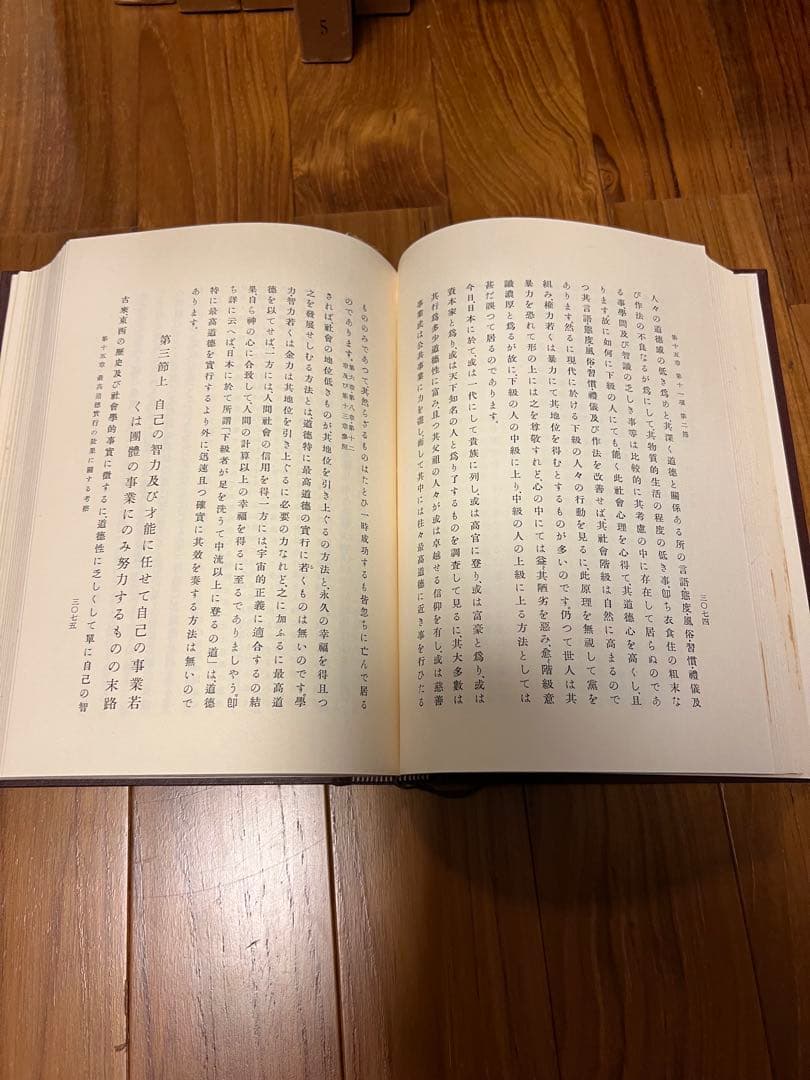 5
三〇七四
第十五章 第十一項 第二節
人々の道德識の低き爲めと其深く道德と關係ある所の言語・態度・風俗・習慣・禮儀及
び作法の不良なるが爲にして、其物質的生活の程度の低き事、卽ち衣食住の粗末な
る事、學問及び智識の乏しき事等は比較的に其考慮の中に存在して居らぬのであ
ります。故に如何に下級の人にても、能く此社會心理を心得て、其道德心を高くし、且
つ其言語・態度・風俗・習慣・禮儀及び作法を改善せば、其社會階級は自然に高まるので
あります。然るに現代に於ける下級の人々の行動を見るに、此原理を無視して黨を
組み、權力若くは暴力にて其地位を得むとするものが多いのです。仍つて世人は其
暴力を恐れて形の上には之を尊敬すれど、心の中にては益〻其陋劣を惡み、愈〻階級意
識濃厚と爲るが故に、下級の人の中級に上り、中級の人の上級に上る方法としては
甚だ誤つて居るのであります。
今日、日本に於て、或は一代にして貴族に列し、或は高官に登り、或は富豪と爲り、或は
資本家と爲り、或は天下知名の人と爲り了するものを調査して見るに、其大多數は
其行爲多少道德性に富み、且つ其父祖の人々が或は卓越せる信仰を有し、或は慈善
事業或は公共事業に力を盡し、而して其中には往々最高道德に近き事を行ひたる
もののみであつて、其然らざるものはたとひ一時成功するも皆忽ちに亡んで居る
のであります。第六章・第八章・第十二章及び第十三章參照
されば社會の地位低きものが其地位を引き上ぐるの方法と、永久の幸福を得且つ
之を發展せしむる方法とは、道德特に最高道德の實行に若くものは無いのです。學
力・智力若くは金力は其地位を引き上ぐるに必要の力なれど、之に加ふるに最高道
德を以てせば、一方には、人間社會の信用を得、一方には、宇宙的正義に適合するの結
果自ら神の心に合致して、人間の計算以上の幸福を得るに至るでありましやう。卽
ち詳に云へば、日本に於て所謂「下級者が足を洗うて中流以上に登るの道」は、道德
特に最高道德を實行するより外に迅速且つ確實に其效を奏する方法は無いので
あります。
第三節上 自己の智力及び才能に任せて自己の事業若
くは團體の事業にのみ努力するものの末路
古來東西の歷史及び社會學的事實に徵するに、道德性に乏しくして單に自己の智
第十五章 最高道德實行の效果に關する考察
三〇七五